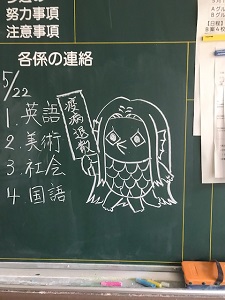 努力事項
注意事項
各係の連絡
5/22
1. 英語
2. 美術
3. 社会
4 国語
疫病退散
【日程】